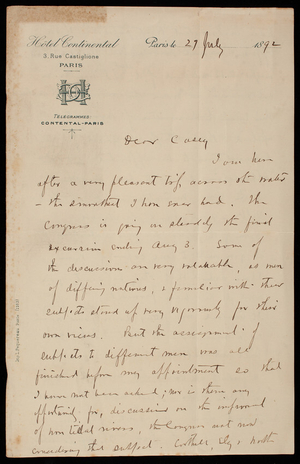 Hotel Continental
3, Rue Castiglione
PARIS
TELEGRAMMES:
CONTENTAL-PARIS
Paris le 27 July 1892
Dear Casey
I am here
after a very pleasant trip across the water
- the smoothest I have ever had. The
Congress is going on steadily the final
excursion ending Aug 3. Some of
the discussions are very valuable, as men
of differing nations, & familiar with their
subjects stand up very vigorously for their
own views. But the assignment of
subjects to different men was all
finished before my appointment so that
I have not been asked; nor is there any
opportunity for discussion on the improvement
of non tidal rivers, the Congress not now
considering that subject.